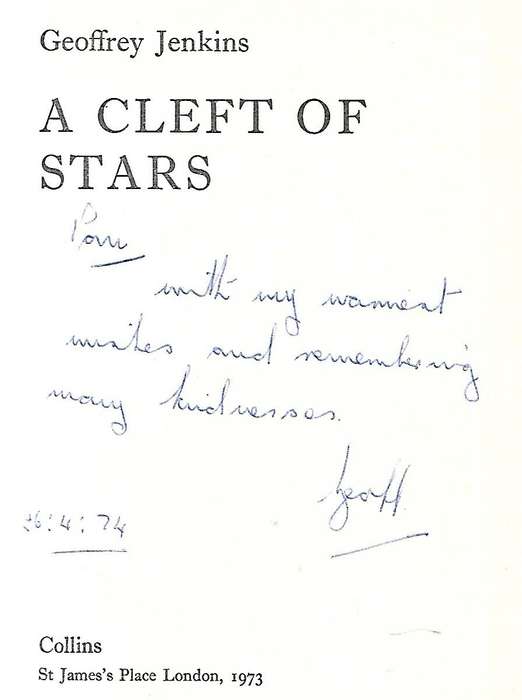 Geoffrey Jenkins
A CLEFT OF
STARS
Pam
with my warmest
wishes and remembering
many kindnesses.
Geoff
26:4:74
Collins
St James's Place London, 1973